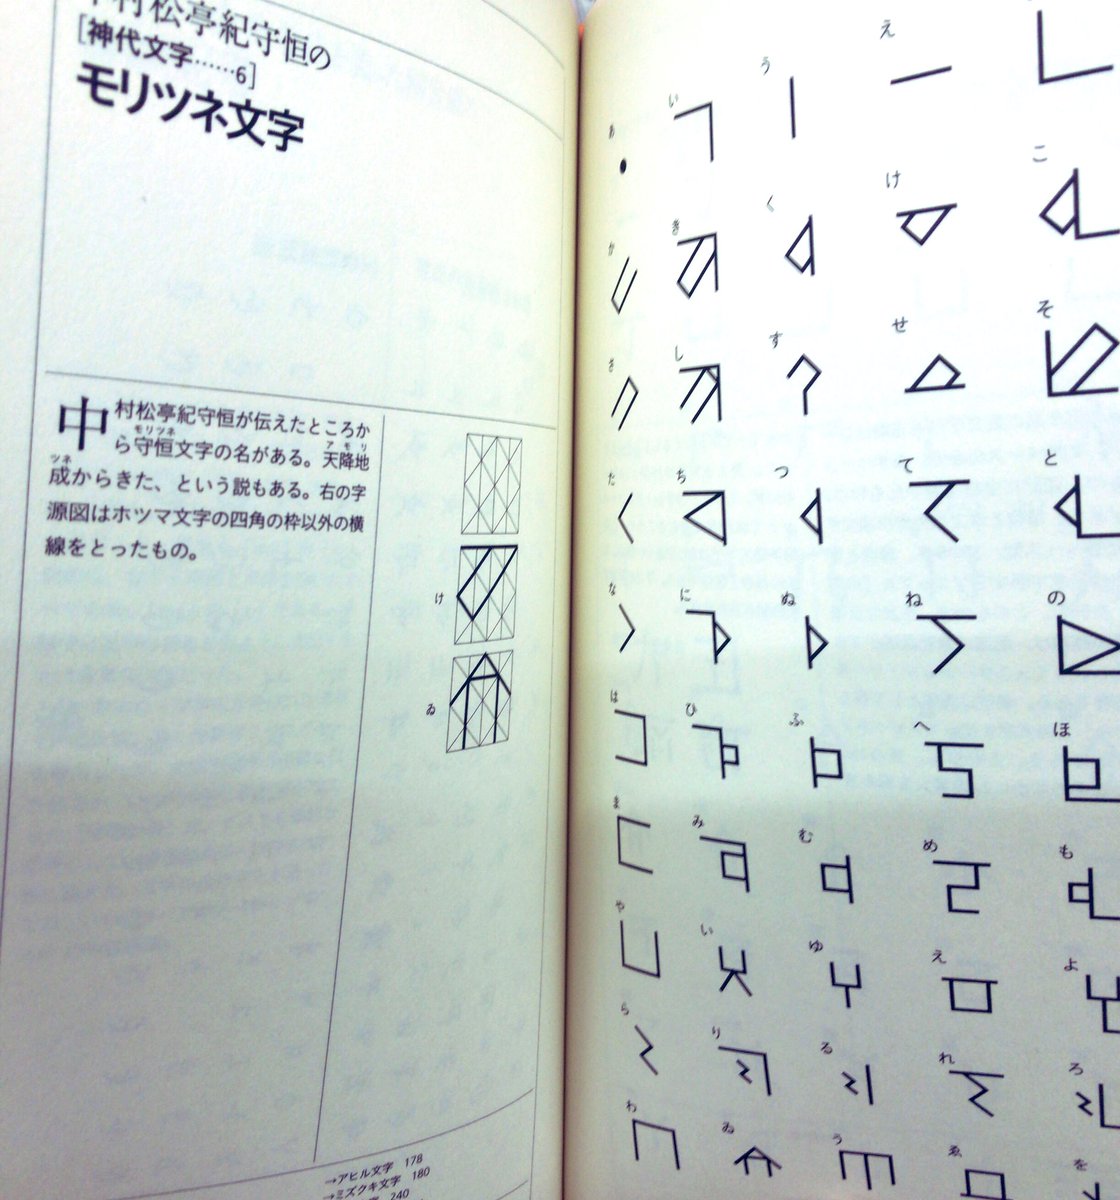 中村松亭紀守恒の
[神代文字……6]
モリツネ文字
中村松亭紀守恒が伝えたところか
モリツネ アモリ
ら守恒文字の名がある。天降地
ツネ
成からきた、という説もある。右の字
源図はホツマ文字の四角の枠以外の横
線をとったもの。
け
ゐ
→アヒル文字 178
→ミズクキ文字 180
240
あ い う え
か き く け こ
さ し す せ そ
た ち つ て と
な に ぬ ね の
は ひ ふ へ ほ
ま み む め も
や い ゆ え よ
ら り る れ ろ
わ ゐ う ゑ を